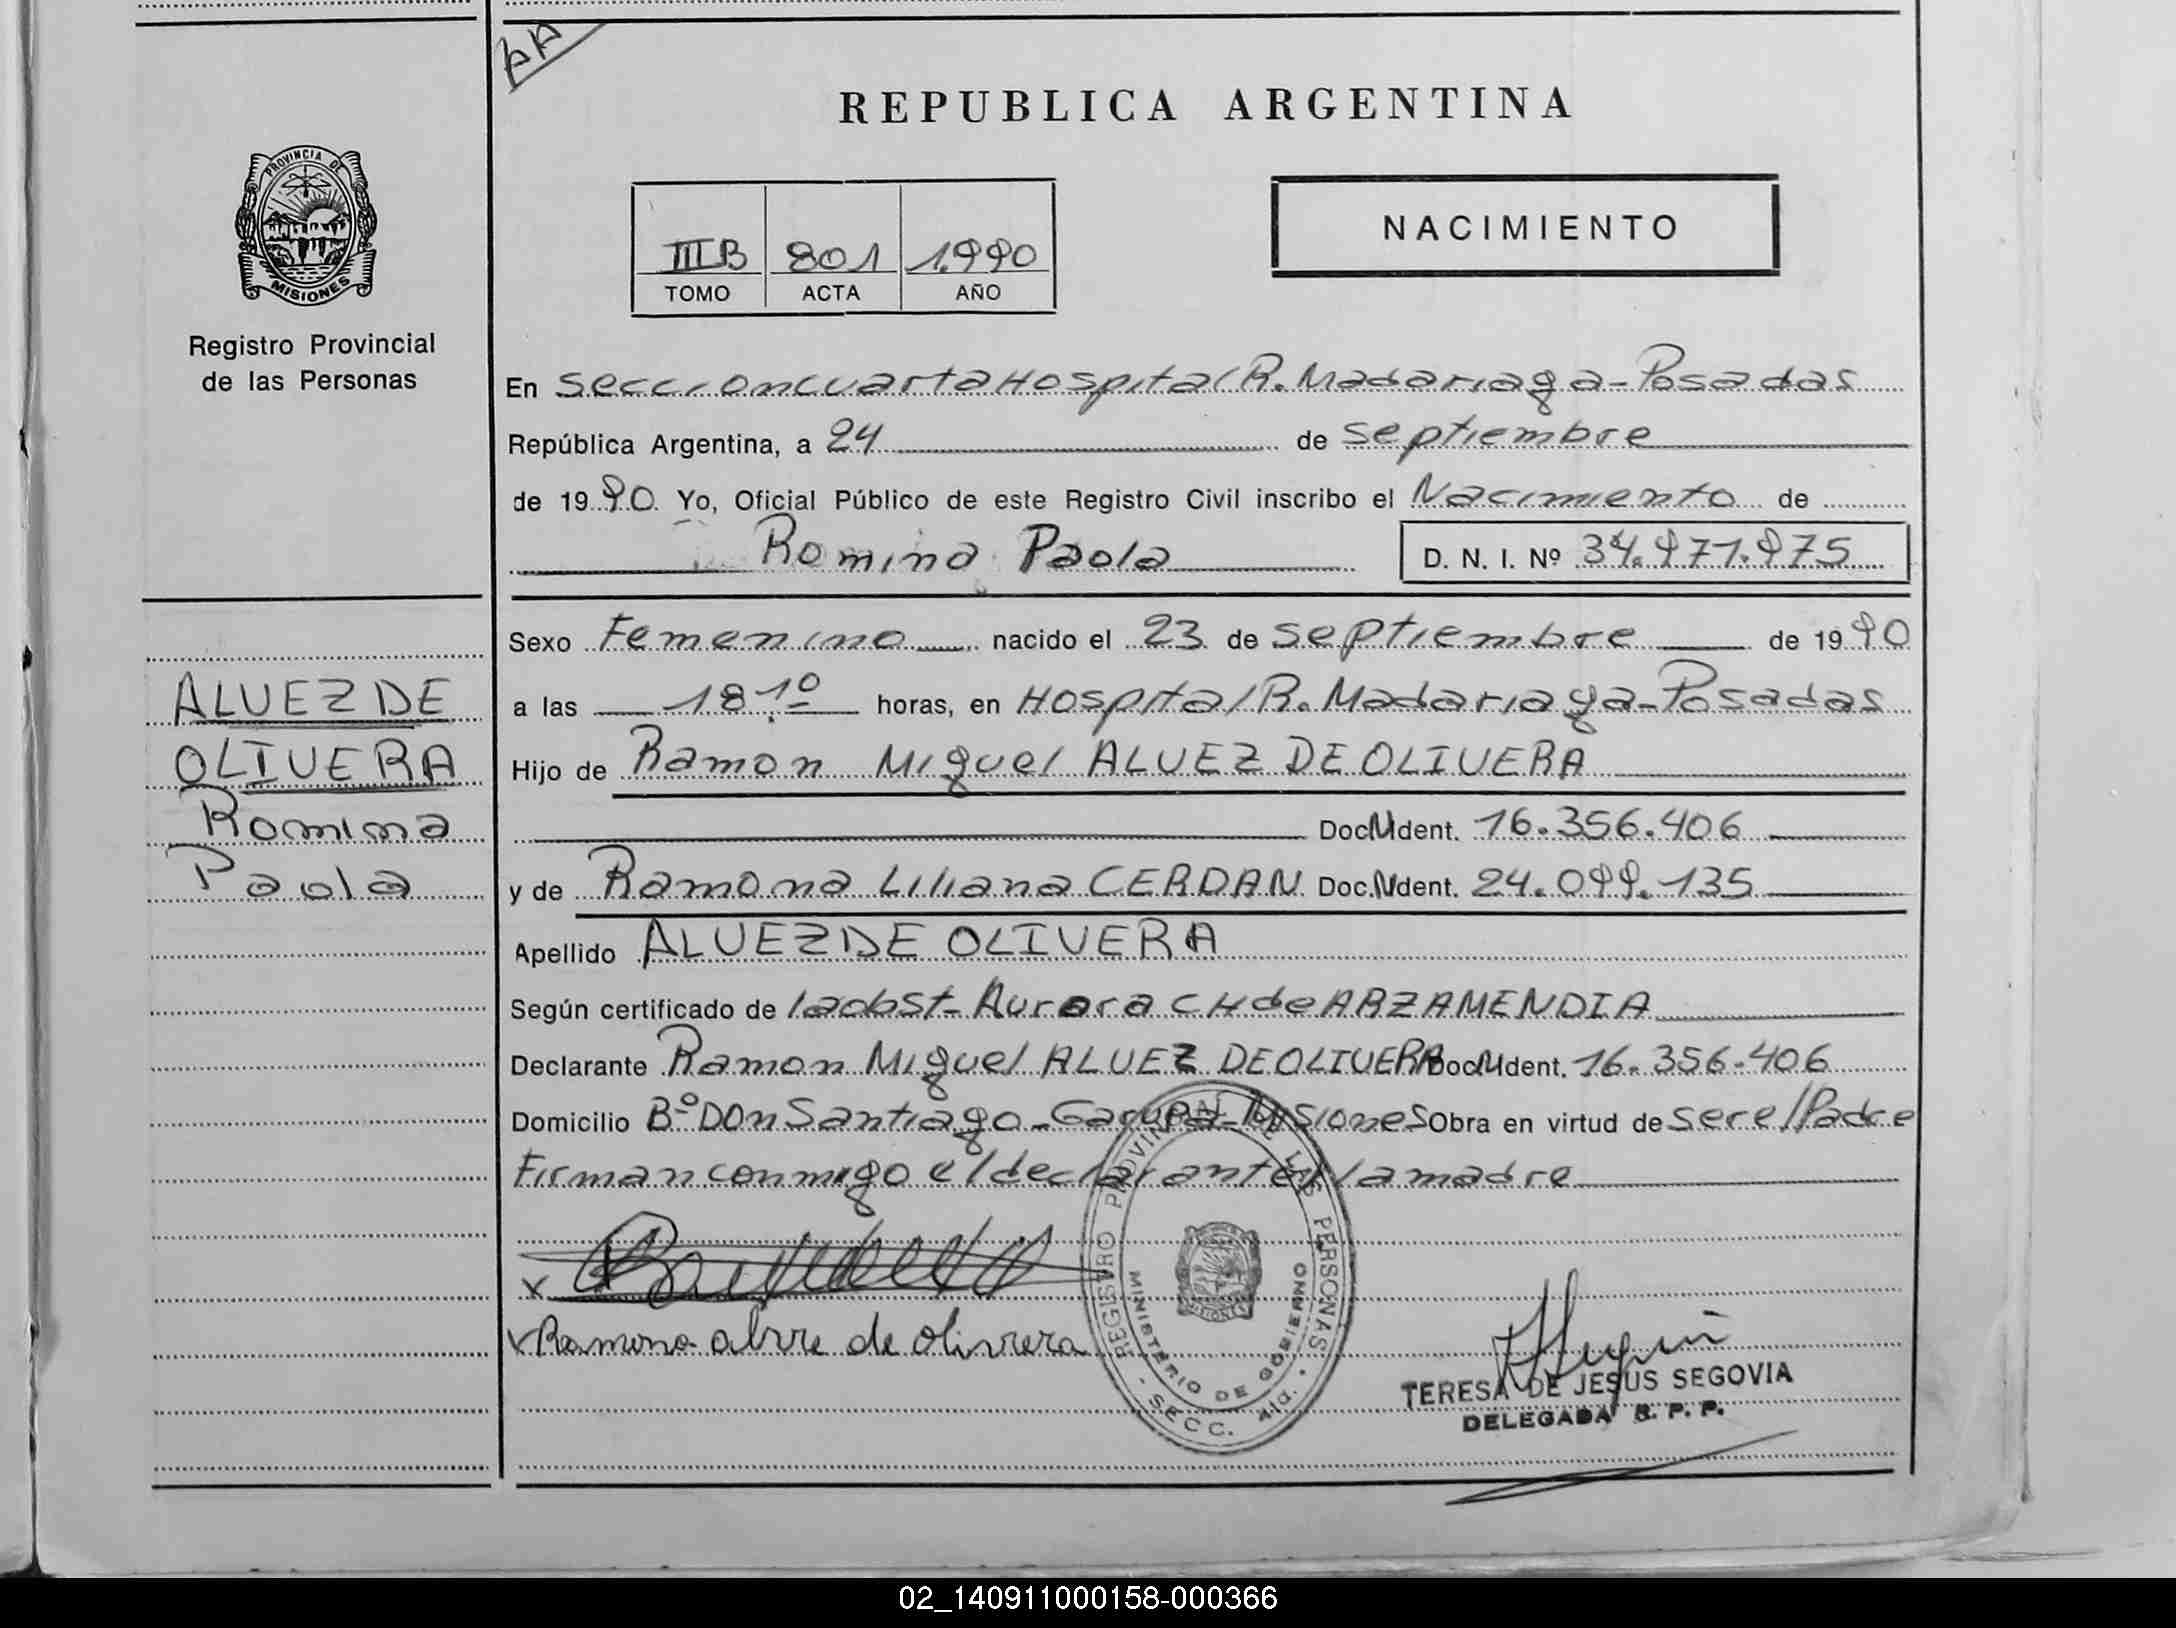 AA
REPUBLICA ARGENTINA
PROVINCIA DE
MISIONES
Registro Provincial
de las Personas
NACIMIENTO
IIIB 801 1.990
TOMO ACTA AÑO
En Seccion cuarta Hospital R. Madariaga - Posadas
República Argentina, a 24 de septiembre
de 1990 Yo, Oficial Público de este Registro Civil inscribo el Nacimiento de
Romina Paola D. N. I. Nº 34.971.975
Sexo Femenino nacido el 23 de septiembre de 1990
a las 18.10 horas, en Hospital R. Madariaga - Posadas
Hijo de Ramon Miguel ALVEZ DE OLIVERA
Doc. Ident. 16.356.406
y de Ramona Liliana CERDAN Doc. Ident. 24.099.135
Apellido ALVEZ DE OLIVERA
Según certificado de la obst - Aurora CH de ARZAMENDIA
Declarante Ramon Miguel ALVEZ DE OLIVERA Doc. Ident. 16.356.406
Domicilio Bº Don Santiago - Garupa - Misiones Obra en virtud de ser el Padre
Firman conmigo el declarante y la madre
ALVEZ DE
OLIVERA
Romina
Paola
x
x Ramona alvre de olivera
REGISTRO PROVINCIAL DE LAS PERSONAS
MINISTERIO DE GOBIERNO
MISIONES
SECC. 4ta.
TERESA DE JESUS SEGOVIA
DELEGADA R. P. P.
02_140911000158-000366